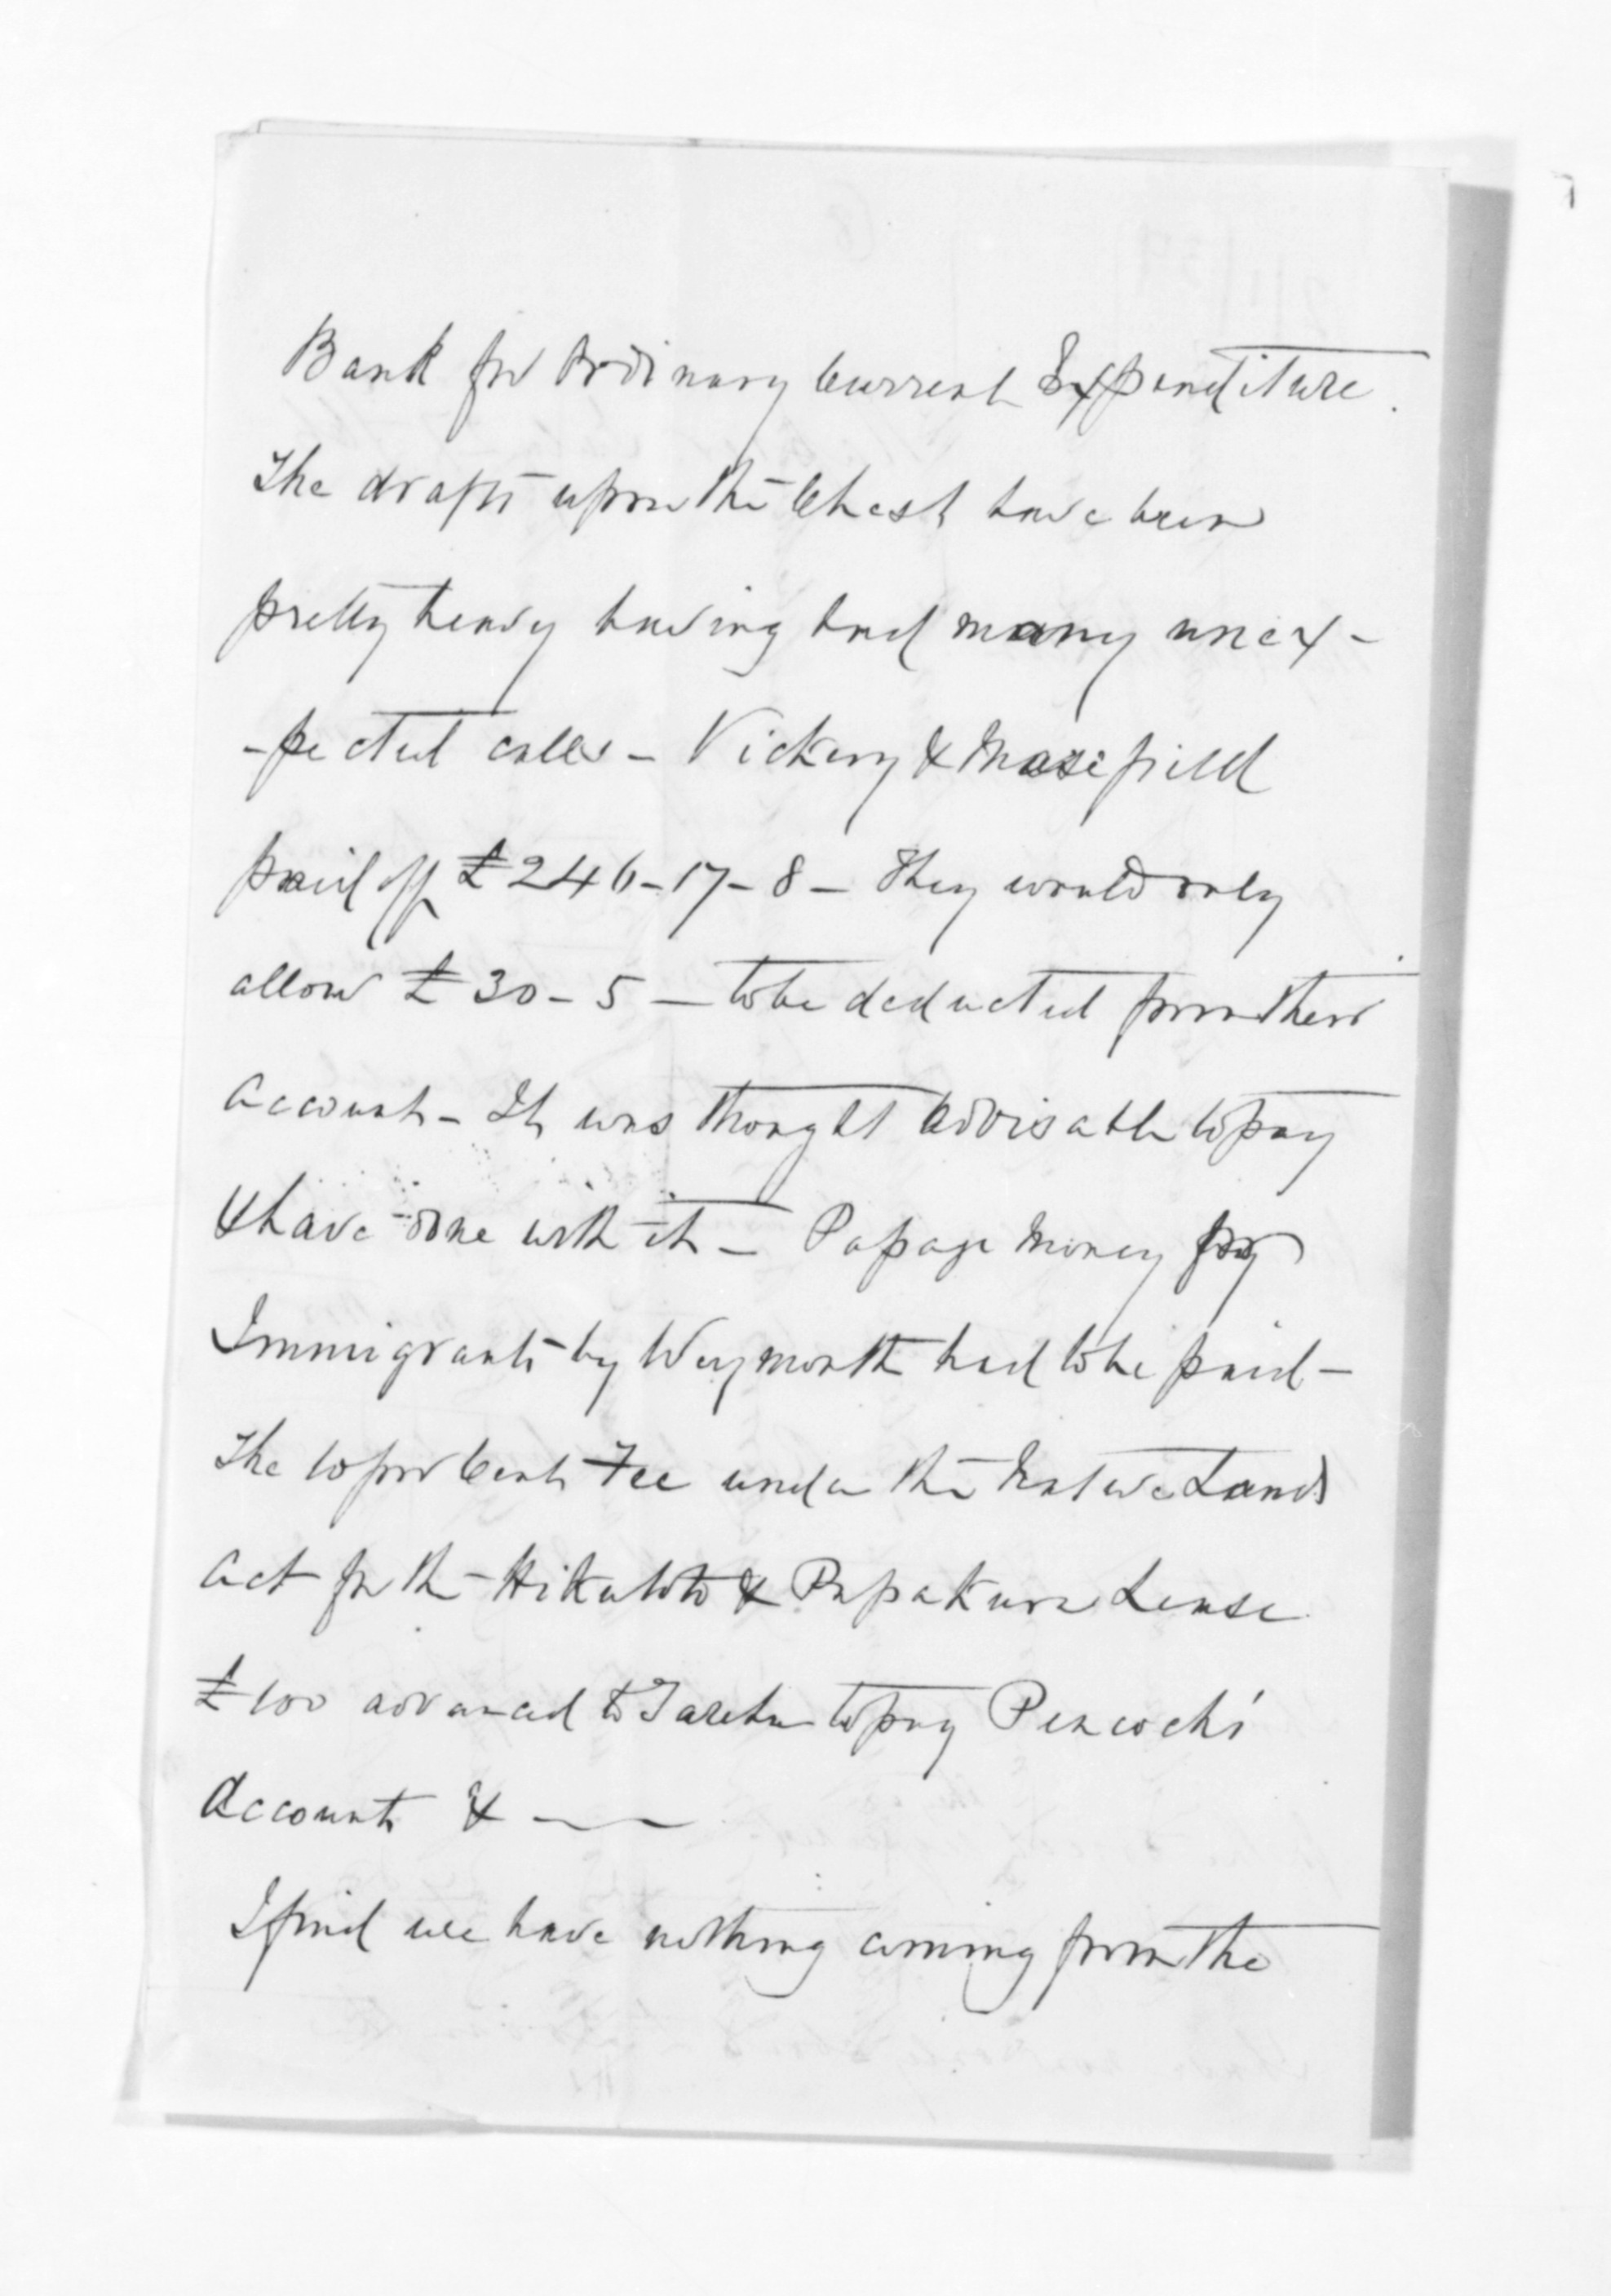 Bank for Ordinary Current Expenditure.
The drafts upon the Chest have been
pretty heavy having had many unex-
-pected calls - Vickery & Masefield
paid off £246-17-8 - They would only
allow £30-5 - to be deducted from their
Account - It was thought advisable to pay
& have done with it - Passage Money for
Immigrants by Weymouth had to be paid -
The 10 per Cent Fee under the Native Lands
Act for the Hikutoto & Papakura Lease
£100 advanced to Tareha to pay Peacock's
Account &
I find we have nothing coming from the